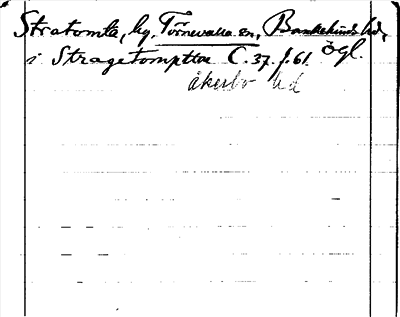 Stratomta, hg. Törnevalla sn, Bankekinds hd, Ögl.
i Stragetomptæ C. 37. f. 61.
åkerbo hd